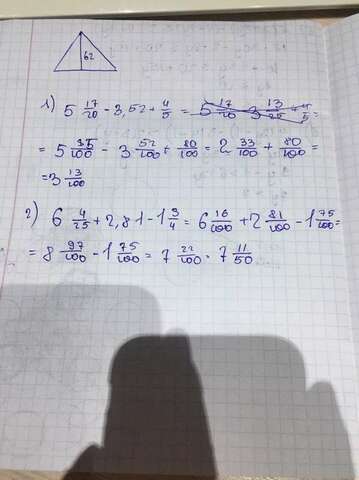 62
1) 5 17/20 - 3,52 + 4/5 = 5 17/20 - 3 13/25 + 4/5 =
= 5 85/100 - 3 52/100 + 80/100 = 2 33/100 + 80/100 =
= 3 13/100
2) 6 4/25 + 2,81 - 1 3/4 = 6 16/100 + 2 81/100 - 1 75/100 =
= 8 97/100 - 1 75/100 = 7 22/100 = 7 11/50